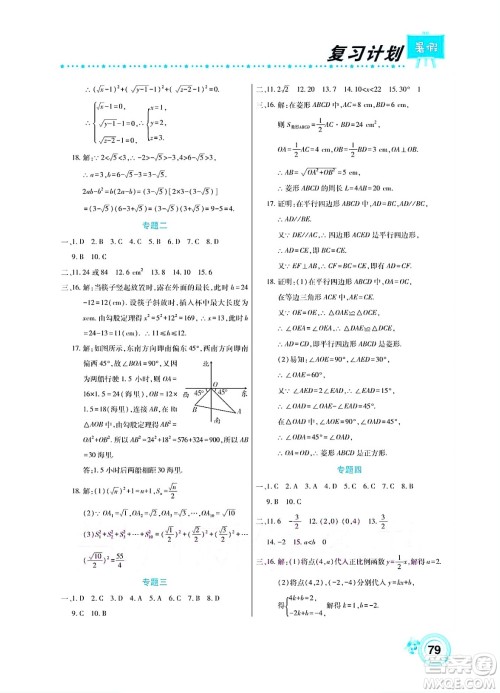 复习计划
暑假
∴(√x-1)²+(√y-1-1)²+(√z-2-1)²=0,
∴{√x-1=0, √y-1-1=0, √z-2-1=0, ∴{x=1, y=2, z=3.
18. 解:∵2<√5<3,∴-2>-√5>-3,∴3>5-√5>2,
∴a=3,b=5-√5-2=3-√5.
2ab-b²=b(2a-b)=(3-√5)[2×3-(3-√5)]
=(3-√5)(6-3+√5)=(3-√5)(3+√5)=9-5=4.
专题二
一、1. D 2. B 3. C 4. A 5. C 6. A 7. D 8. B
9. B 10. C
二、11. 24或84 12. 6 cm² 13. 4 14. 10 15. 6
三、16. 解:当筷子竖起放置时,露在外面的部分最长,此时h=24
-12=12(cm).设筷子倾斜放时,插入杯中最大长度为
x cm.由勾股定理得x²=5²+12²=169,∴x=13,此时
h=24-13=11(cm).∴11≤h≤12.
17. 解:如图所示,东南方向即南偏东45°,西南方向即南
偏西45°,故∠BOA=90°,
因为两船航行1.5小时,则OA=
16×1.5=24(海里),OB=12
×1.5=18(海里),连接AB,在
△AOB中,由勾股定理得
OA²+OB²=AB²,AB²=24²+18²=576+324=900,
∴AB=30(海里).
答:1.5小时后两船相距30海里.
北
西
东
南
45°
45°
O
A
B
18. 解:(1)(√n)²+1=n+1,Sₙ=√n/2
(2)∵OA₁=√1,OA₂=√2,OA₃=√3,…∴OA₁₀=√10
(3)S₁²+S₂²+S₃²+…+S₁₀²=(√1/2)²+(√2/2)²+(√3/2)²+…+
(√10/2)²=55/4
专题三
一、1. D 2. A 3. C 4. A 5. C 6. D 7. D 8. D
9. C 10. B
二、11. 2√2 12. 20 13. 0<a<8 14. 8 15. √3
三、16. 解:∵在菱形ABCD中,AC=8 cm,BD=6 cm,
则S菱形ABCD=1/2 AC·BD=24 cm²,
OA=1/2 AC=4 cm,OB=1/2 BD=3 cm,OA⊥OB,
∴AB=√OA²+OB²=5 cm,
∴菱形ABCD的周长L=4AB=20 cm.
17. 证明:∵在平行四边形ABCD中,∴AD//BC,
又∵DE//AC,∴四边形ACED是平行四边形,
∴AD=CE,∴BC=CE.
又∵EF⊥AB,∴CF=BC=CE.
18. 证明:(1)在平行四边形ABCD中,OA=OC,
在等边三角形ACE中,AE=CE,
又∵OE=OE,∴△AOE≌△COE,
∴∠AOE=∠COE=90°,∴△AOD≌△COD,
∴AD=CD,即平行四边形ABCD是菱形.
(2)易知∠AEO=∠OEC=30°,
∴∠OAE=60°=∠EAD+∠OAD,
∴∠OAD=45°,
∴∠ODA=45°=∠OAD,
∴OA=OD,∴AC=BD,
∴菱形ABCD是正方形.
专题四
一、1. C 2. A 3. A 4. B 5. D 6. C 7. D 8. A
9. B 10. C
二、11. 6 -3/2 12. (3/2,0) (0,3) 13. (0,-2)
14. -2 15. a<b
三、16. 解:(1)将点(4,a)代入正比例函数y=1/2x,解得a=2.
(2)将点(4,2)、(-2,-4)分别代入y=kx+b,得
{4k+b=2, -2k+b=-4. 解得{k=1, b=-2.
79